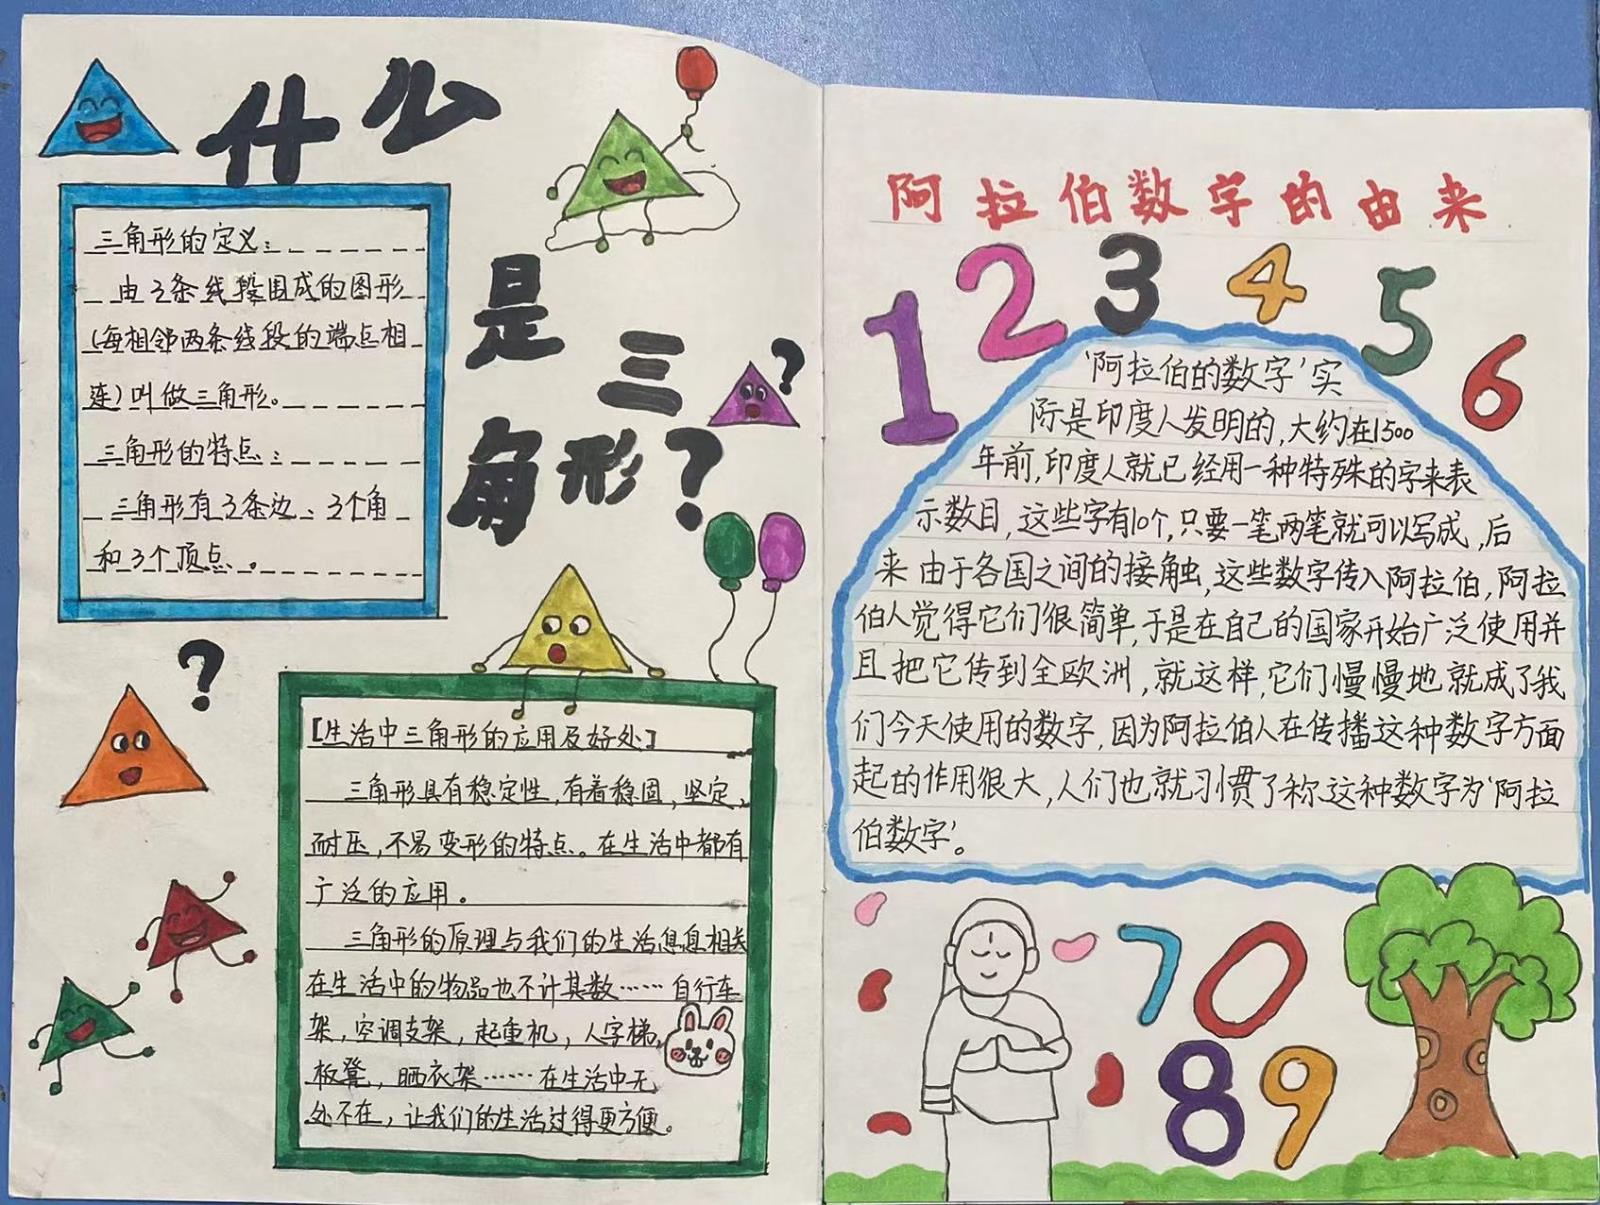 什么
是三
角形?
三角形的定义:
由3条线段围成的图形
(每相邻两条线段的端点相
连)叫做三角形。
三角形的特点:
三角形有3条边、3个角
和3个顶点。
?
?
[生活中三角形的应用及好处]
三角形具有稳定性,有着稳固,坚定,
耐压,不易变形的特点。在生活中都有
广泛的应用。
三角形的原理与我们的生活息息相关
在生活中的物品也不计其数……自行车
架,空调支架,起重机,人字梯,
板凳,晒衣架……在生活中无
处不在,让我们的生活过得更方便。
阿拉伯数字的由来
1 2 3 4 5 6
'阿拉伯的数字'实
际是印度人发明的,大约在1500
年前,印度人就已经用一种特殊的字来表
示数目,这些字有10个,只要一笔两笔就可以写成,后
来由于各国之间的接触,这些数字传入阿拉伯,阿拉
伯人觉得它们很简单,于是在自己的国家开始广泛使用并
且把它传到全欧洲,就这样,它们慢慢地就成了我
们今天使用的数字,因为阿拉伯人在传播这种数字方面
起的作用很大,人们也就习惯了称这种数字为'阿拉
伯数字'。
7 0
8 9